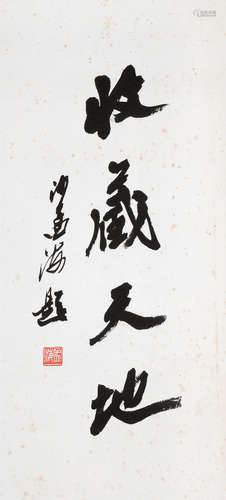 收藏天地
沙孟海题